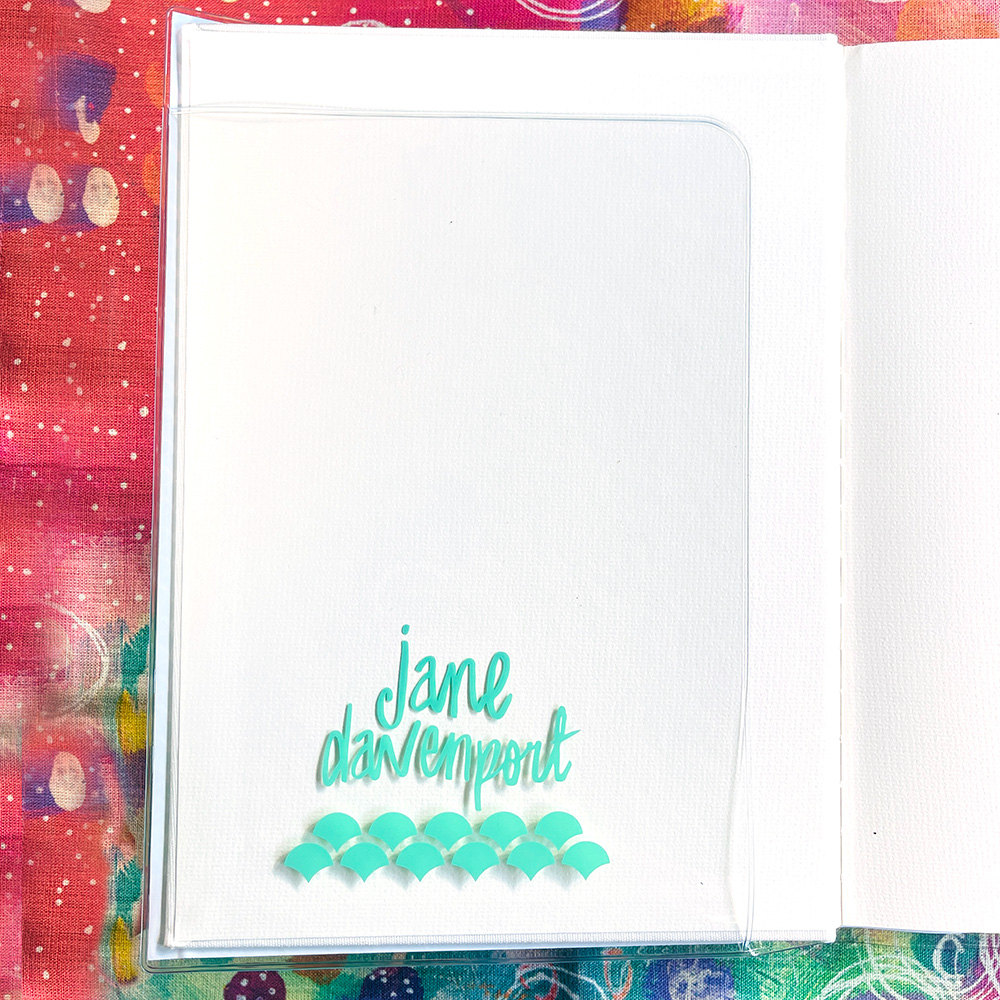 jane
davenport